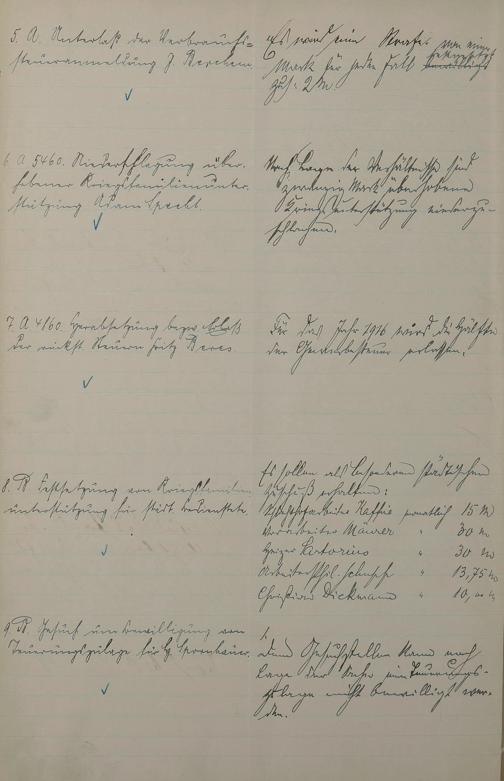 5. A. Unterlaß der Verbrauchs-
steueranmeldung J. Berchem
Es wird eine Strafe von einer
Mark für jeden Fall festgesetzt
zus. 2 M.
6. A 5460. Niederschlagung über-
hobener Kriegsfamilienunter-
stützung Adam Specht.
Nach Lage der Verhältnisse sind
zwanzig Mark überhobene
Kriegsunterstützung niederzu-
schlagen.
7. A 4160. Herabsetzung bezw. Erlaß
der rückst. Steuern Fritz Beres
Für das Jahr 1916 wird die Hälfte
der Gewerbesteuer erlassen.
8. B Festsetzung von Kriegsfamilien
unterstützung für städt. Bedienstete.
Es sollen als besonderen städtischen
Zuschuß erhalten:
Schlachthofarbeiter monatlich 15 M
Vorarbeiter Maurer " 30 M
Heizer Sartorius " 30 M
Arbeiter Phil. " 13,75 M
Christian Dickmann " 10,00 M
9. B. Gesuch um Bewilligung von
Teuerungszulage für H.
Dem Gesuchsteller kann nach
Lage der Sache eine Teuerungs-
zulage nicht bewilligt wer-
den.